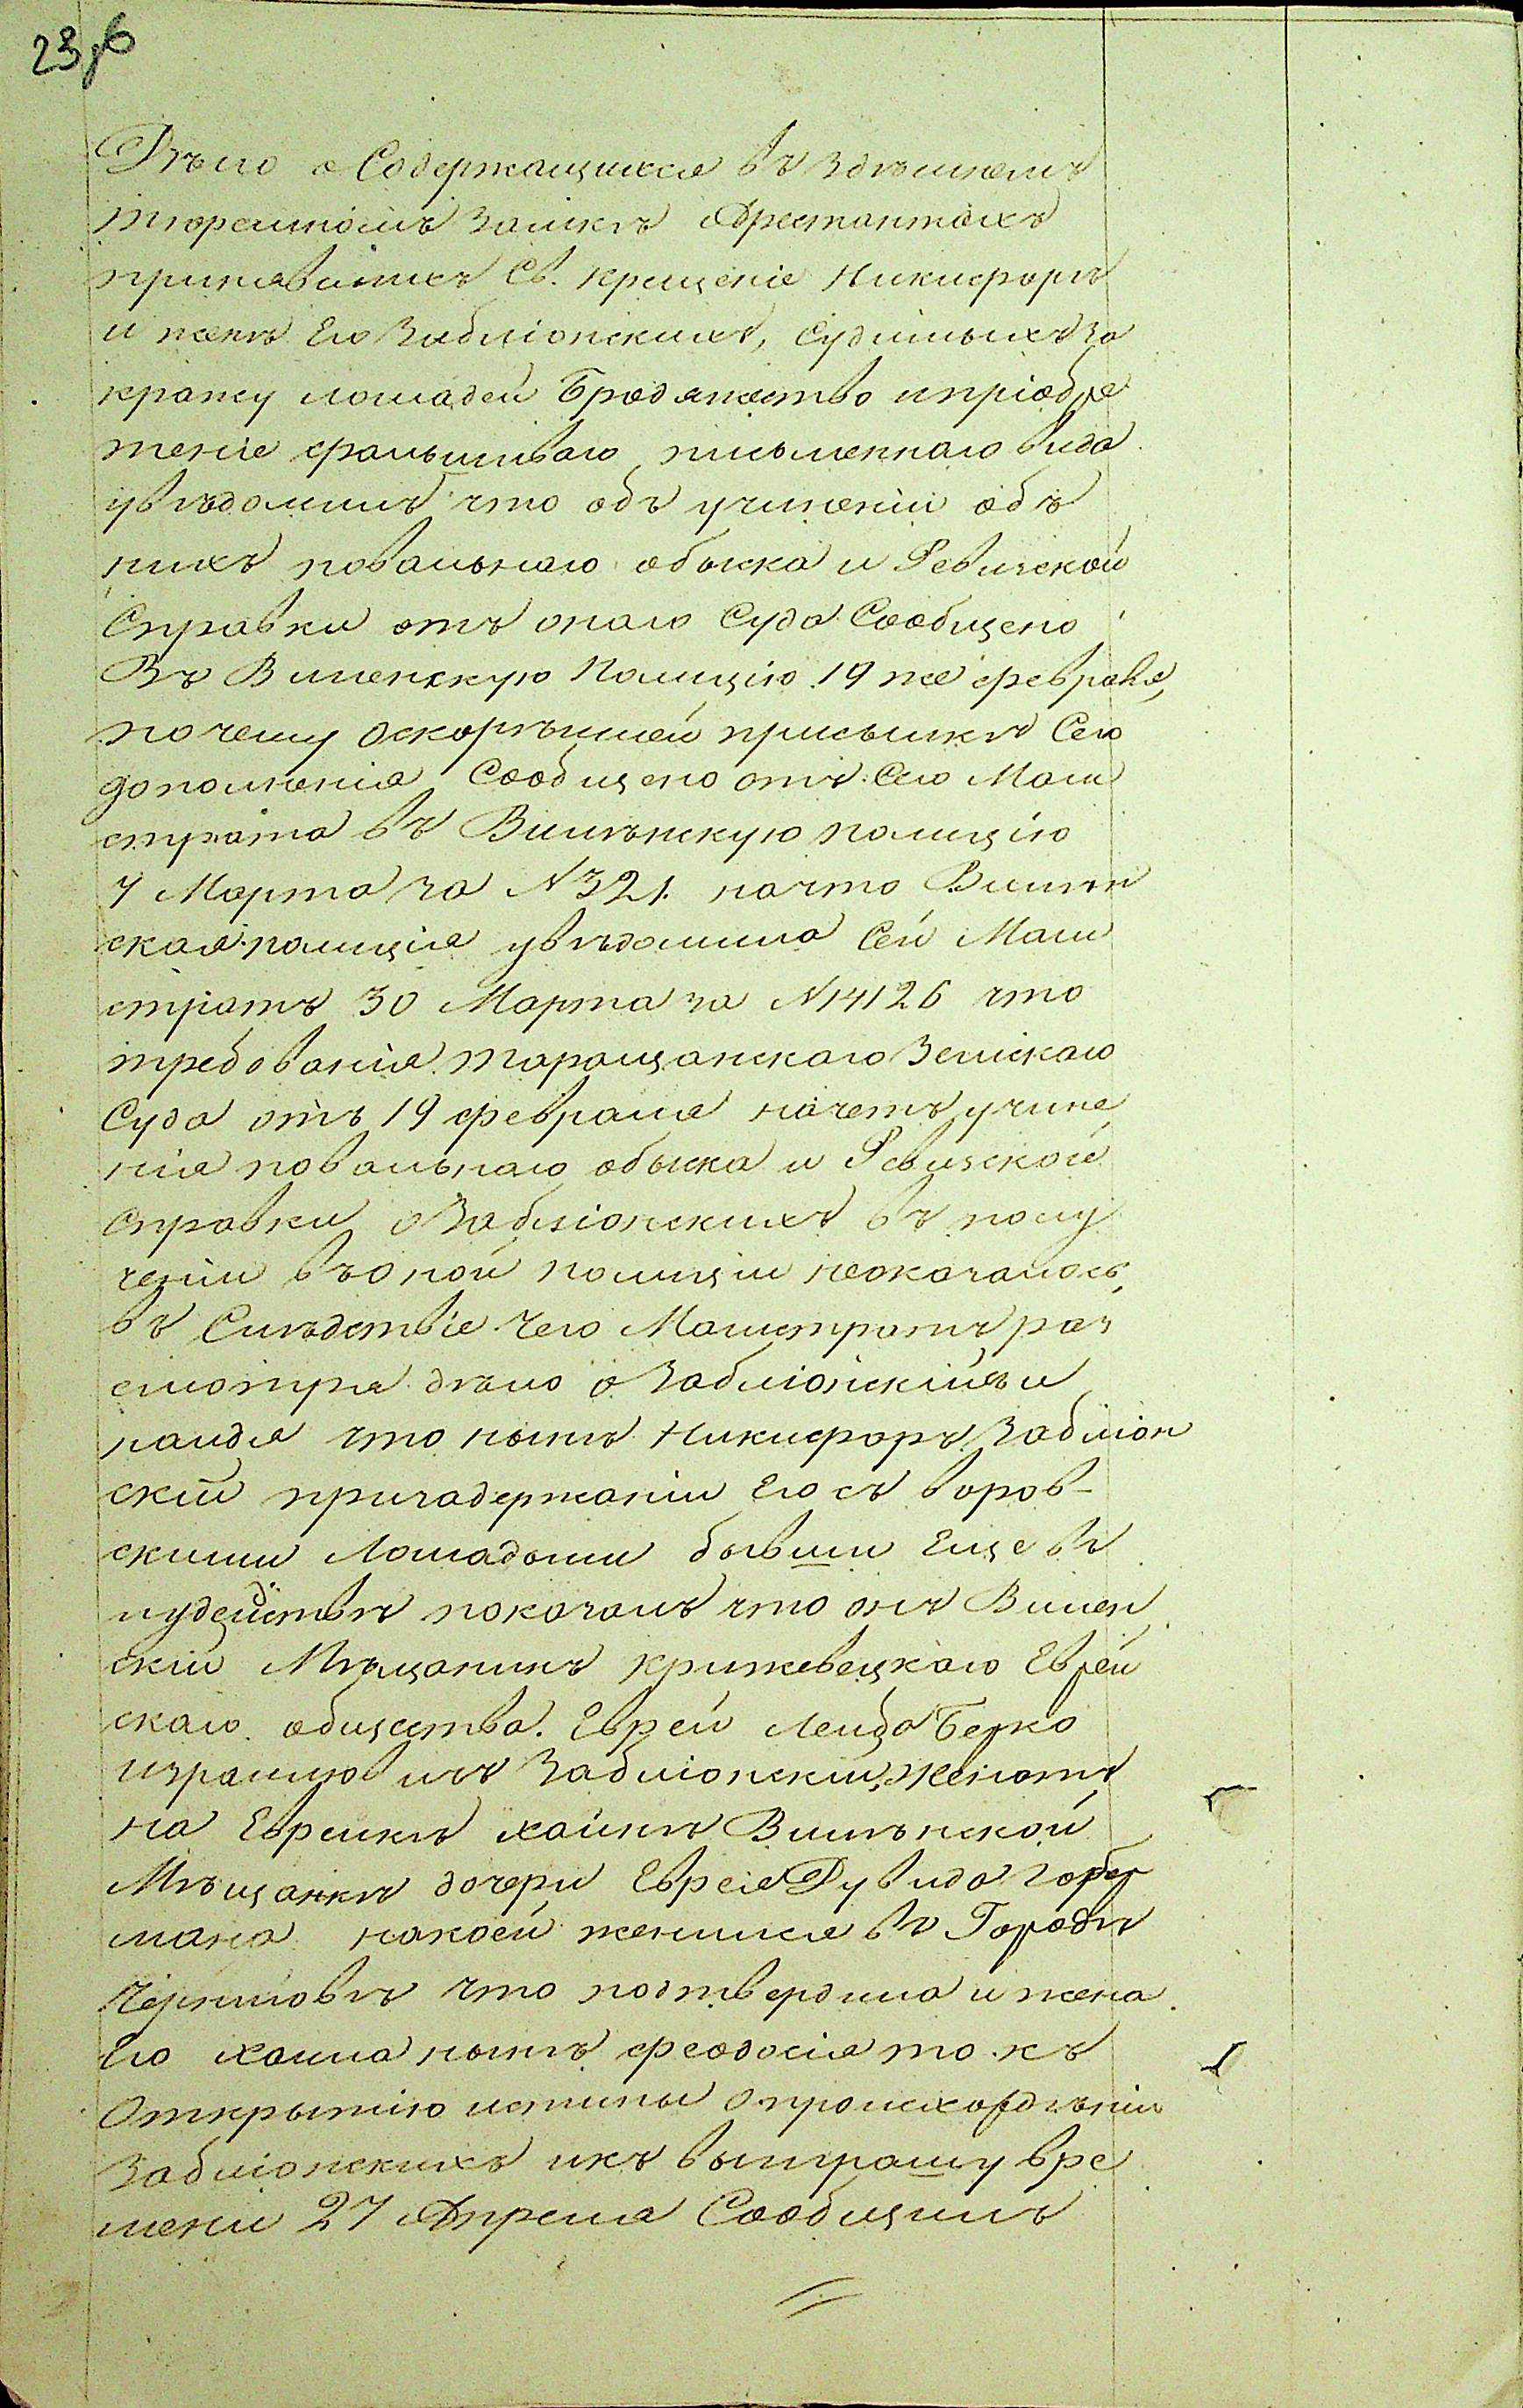 23 об
Дѣло о Содержащихся въ здѣшнемъ
тюремномъ замкѣ Арестантахъ
принявшихъ Св. крещеніе Никифорѣ
и женѣ Его Забліонскихъ, Судимыхъ за
кражу лошадей Бродяжество и пріобре
теніе фальшиваго письменнаго вида
увѣдомилъ что объ учиненіи объ
нихъ повальнаго обыска и Ревизской
Справки отъ онаго Суда Сообщено
Въ Виленскую Полицію 19 же февраля,
почему о скорѣйшей присылкѣ Сего
дополненія Сообщено отъ Сего Маги
страта въ Вилѣнскую полицію
7 Марта за N 321. на что Вилѣн
ская полиція увѣдомила Сей Маги
стратъ 30 Марта за N 14126 что
требованія таращанскаго Земскаго
Суда отъ 19 февраля насчетъ учине
нія повальнаго обыска и Ревизской
Справки о Забліонскихъ въ полу
ченіи въ оной полиціи неоказалось,
въ Слѣдствіе чего Магистратъ раз
смотря дѣло о Забліонскихъ и
найдя что нынѣ Никифоръ Забліон
скій при задержаніи Его съ воров-
скими Лошадьми бывши Еще въ
иудействѣ показалъ что онъ Вилен
скій Мѣщанинъ крижевецкаго Еврей
скаго общества. Еврей Лейба Берко
Израилювичъ Забліонскій, женатъ
на Еврейкѣ хайкѣ Вилѣнской
Мѣщанкѣ дочери Еврея Дувида Гобер
мана на коей женился въ Городѣ
Черниговѣ что подтвердила и жена
Его хаика нынѣ феодосія то къ
Открытію истины о происхожденіи
Забліонскихъ и къ выиграшу вре
мени 27 Апреля Сообщилъ